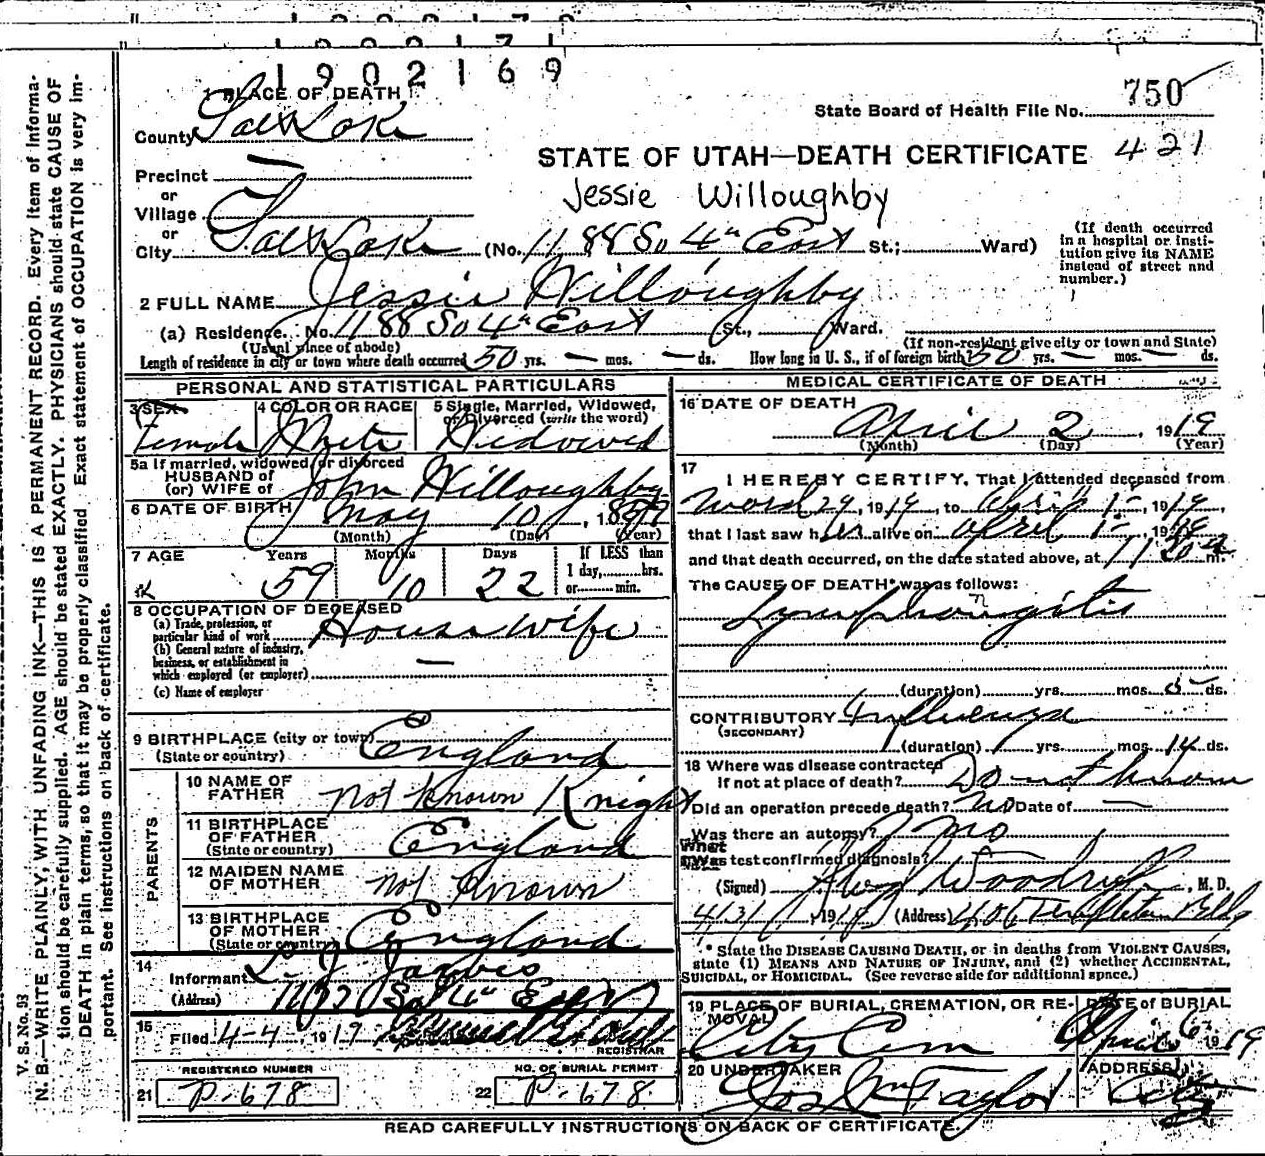 1902169
1 PLACE OF DEATH
State Board of Health File No. 750
County Salt Lake
STATE OF UTAH—DEATH CERTIFICATE 421
Precinct
or
Village
Jessie Willoughby
or
City Salt Lake (No. 1188 So 4th East St.; Ward)
(If death occurred
in a hospital or insti-
tution give its NAME
instead of street and
number.)
2 FULL NAME Jessie Willoughby
(a) Residence. No. 1188 So 4th East St., Ward.
(Usual place of abode) (If non-resident give city or town and State)
Length of residence in city or town where death occurred 50 yrs. — mos. — ds. How long in U. S., if of foreign birth? 50 yrs. — mos. — ds.
PERSONAL AND STATISTICAL PARTICULARS
3 SEX 4 COLOR OR RACE 5 Single, Married, Widowed,
or Divorced (write the word)
Female White Widowed
5a If married, widowed or divorced
HUSBAND of
(or) WIFE of John Willoughby
6 DATE OF BIRTH May 10, 1859
(Month) (Day) (Year)
7 AGE Years Months Days If LESS than
1 day, hrs.
or min.
59 10 22
8 OCCUPATION OF DECEASED
(a) Trade, profession, or
particular kind of work House wife
(b) General nature of industry,
business, or establishment in
which employed (or employer) —
(c) Name of employer
9 BIRTHPLACE (city or town)
(State or country) England
PARENTS
10 NAME OF
FATHER not known Knight
11 BIRTHPLACE
OF FATHER
(State or country) England
12 MAIDEN NAME
OF MOTHER not known
13 BIRTHPLACE
OF MOTHER
(State or country) England
14
Informant L. J. Jarvis
(Address) So 4th East
15
Filed 4-4, 1919
REGISTRAR
REGISTERED NUMBER NO. OF BURIAL PERMIT
21 P-678 22 P-678
MEDICAL CERTIFICATE OF DEATH
16 DATE OF DEATH
April 2, 1919
(Month) (Day) (Year)
17
I HEREBY CERTIFY, That I attended deceased from
29, 1919, to April 1-, 1919,
that I last saw her alive on April 1-, 1919
and that death occurred, on the date stated above, at m.
The CAUSE OF DEATH* was as follows:
Lymphangitis
(duration) yrs. mos. 5 ds.
CONTRIBUTORY Influenza
(SECONDARY)
(duration) yrs. mos. 14 ds.
18 Where was disease contracted
If not at place of death? Do not know
Did an operation precede death? No Date of —
Was there an autopsy? no
What
test confirmed diagnosis?
(Signed) Woodruff, M. D.
, 19 (Address) Templeton Bldg
* State the DISEASE CAUSING DEATH, or in deaths from VIOLENT CAUSES,
state (1) MEANS AND NATURE OF INJURY, and (2) whether ACCIDENTAL,
SUICIDAL, or HOMICIDAL. (See reverse side for additional space.)
19 PLACE OF BURIAL, CREMATION, OR RE- DATE of BURIAL
MOVAL
City Cem April 6 1919
20 UNDERTAKER ADDRESS
Jos Wm Taylor City
READ CAREFULLY INSTRUCTIONS ON BACK OF CERTIFICATE.
V. S. No. 93
N. B.—WRITE PLAINLY, WITH UNFADING INK—THIS IS A PERMANENT RECORD. Every item of informa-
tion should be carefully supplied. AGE should be stated EXACTLY. PHYSICIANS should state CAUSE OF
DEATH in plain terms, so that it may be properly classified. Exact statement of OCCUPATION is very im-
portant. See instructions on back of certificate.